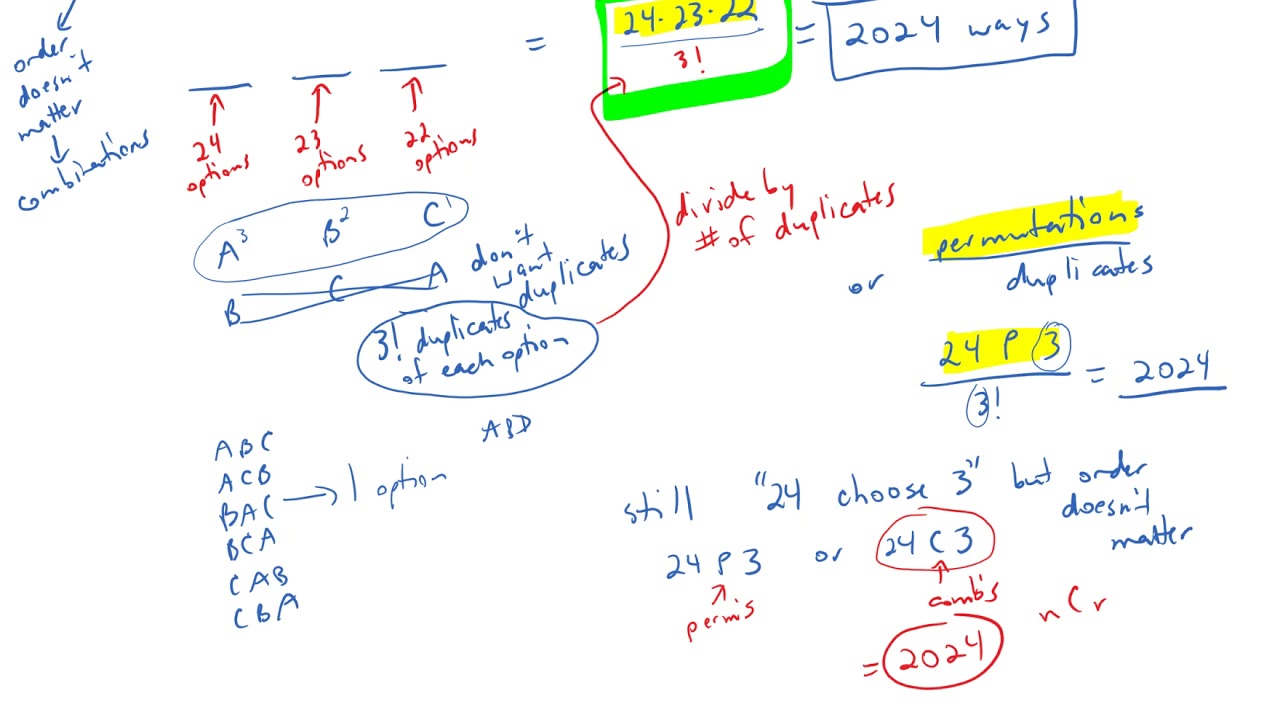 order
doesn't
matter
combinations
24
options
23
options
22
options
=
24·23·22
3!
= 2024 ways
A³ B² C¹
B C A
don't
want
duplicates
3! duplicates
of each option
divide by
# of duplicates
or
permutations
duplicates
24 P 3
3!
= 2024
ABD
ABC
ACB
BAC → 1 option
BCA
CAB
CBA
still "24 choose 3" but order
doesn't
matter
24 P 3 or 24 C 3
perms
comb's
nCr
= 2024